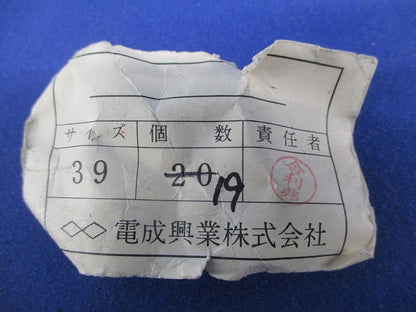 サイズ 個数 責任者
39 20 19
電成興業株式会社